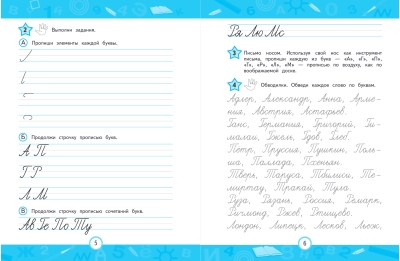 2 Выполни задания.
А Пропиши элементы каждой буквы.
Б Продолжи строчку прописью букв.
А П
Г Р
Л М
В Продолжи строчку прописью сочетаний букв.
Ав Ге По Ту
5
Ря Лю Мс
3 Письмо носом. Используя свой нос как инструмент
письма, пропиши каждую из букв — «А», «Г», «П»,
«Т», «Р», «Л», «М» — прописью по воздуху, как по
воображаемой доске.
4 Обводилки. Обведи каждое слово по буквам.
Адлер, Александр, Анна, Арме-
ния, Австрия, Астафьев.
Гано, Германия, Григорий, Ги-
малаи, Гжель, Гдов, Глеб.
Пётр, Пруссия, Пушкин, Поль-
ша, Паллада, Пхеньян.
Тверь, Таруса, Тбилиси, Те-
миртау, Тракай, Тула.
Руза, Рязань, Россия, Ремарк,
Ричмонд, Ржев, Ртищево.
Лондон, Липецк, Лесков, Льеж,
6